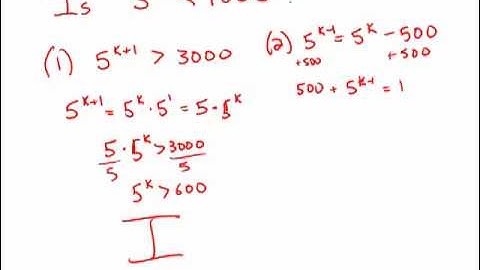 Is 5
(1) 5^{k+1} > 3000
5^{k+1} = 5^k · 5^1 = 5 · 5^k
5 · 5^k > 3000
5 5
5^k > 600
I
(2) 5^{k-1} = 5^k - 500
+500 +500
500 + 5^{k-1} = 1